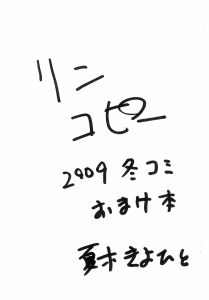 リン
コピー
2009 冬コミ
おまけ本
夏才きよひと